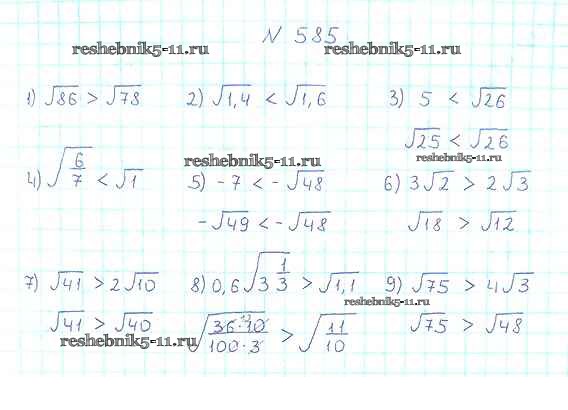 N 585
reshebnik5-11.ru reshebnik5-11.ru
1) √86 > √78 2) √1,4 < √1,6 3) 5 < √26
√25 < √26
reshebnik5-11.ru reshebnik5-11.ru
4) √(6/7) < √1 5) -7 < -√48 6) 3√2 > 2√3
-√49 < -√48 √18 > √12
7) √41 > 2√10 8) 0,6√(3 1/3) > √1,1 9) √75 > 4√3
reshebnik5-11.ru
√41 > √40 √(36·10/100·3) > √(11/10) √75 > √48
reshebnik5-11.ru